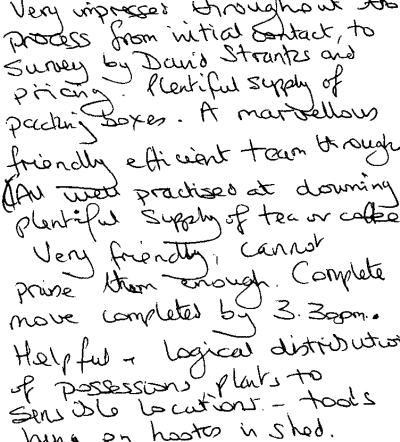 Very impressed throughout the
process from initial contact, to
survey by David Stranks and
pricing. Plentiful supply of
packing boxes. A marvellous
friendly efficient team through
(All well practised at downing
plentiful supply of tea or coffee
Very friendly, cannot
praise them enough. Complete
move completed by 3.30pm.
Helpful - logical distribution
of possessions, plants to
sensible locations - tools
hung on hooks in shed.